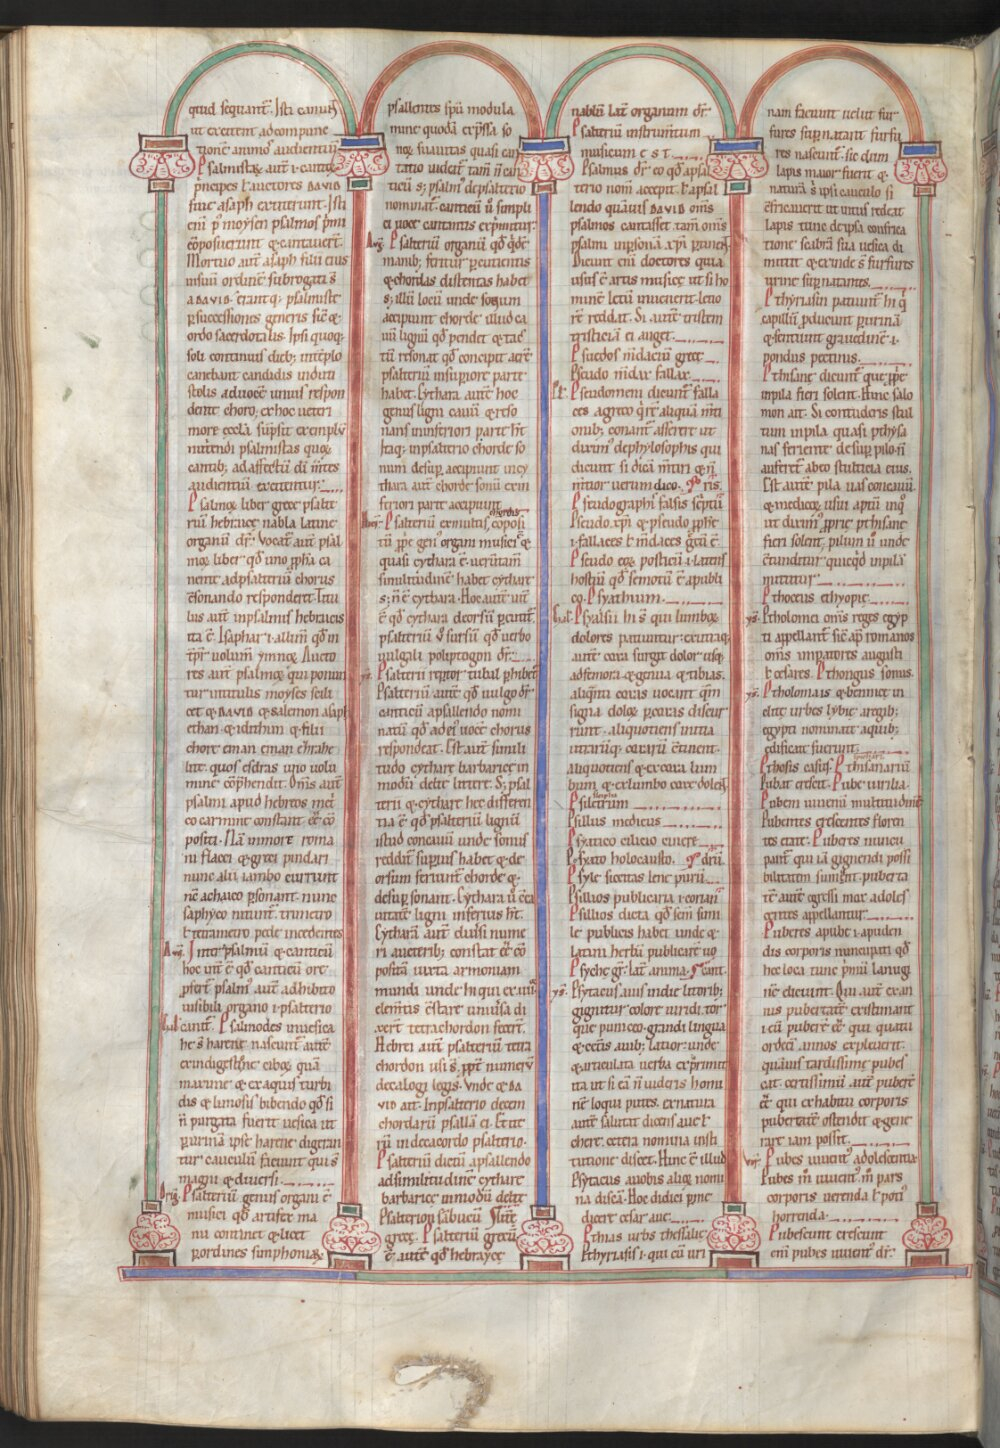 quid sequant̄. Isti canunt
ut excitent ad compunc
tionē animos audientiū
Psalmistaꝝ aut̄ ł cantoꝝ
pncipes ł auctores DAVID
siue asaph extiterunt. Isti
eni p̄ moysen psalmos pmi
cōposuerunt & cantauert̄.
Mortuo aut̄ asaph filii eius
in suū ordinē subrogati s̄
a DAVID. erantq; psalmistę
p successiones generis sicē &
ordo sacerdotalis. Ipsi quoq;
soli continuis dieb; in tēplo
canebant candidis induti
stolis ad uocē unius respon
dente choro; ex hoc ueteri
more eccła sūpsit exemplū
nutriendi psalmistas quoꝝ
cantib; ad affectū di m̄tes
audientiū excitentur.
Psalmoꝝ liber grece psalte
riū hebraice nabla latine
organū dr̄. Vocat̄ aut̄ psal
moꝝ liber qđ uno ppħa ca
nente ad psalteriū chorus
cōsonando responderit. Titu
lus aut̄ in psalmis hebraicis
ita ē. Isaphar.i. allim qđ in
tp̄r̄ uolum̄ ymnoꝝ. Aucto
res aut̄ psalmoꝝ qui ponun
tur in titulis moyses scili
cet & DAVID & salemon asaph
ethan & idithun & filii
chore eman
lit. quos esdras uno uolu
mine cōp̄hendit. Om̄s aut̄
psalmi apud hebreos metꝛi
co carmine constant eē cō
posita. Nā in more roma
ni flacci & greci pindari
nunc alii iambo currunt
nē achaico psonant. nunc
saphyco nitunt̄. trimetro
ł tetrametro pede incedentes
Aug̅. Inter psalmū & canticū
hoc int̄ ē qđ canticū ore
pfert̄ psalm̄ aut̄ adhibito
uisibili organo .i. psalterio
canit̄. Psalmodes in uesica
he s̄ harene nascunt̄ aut ē
ex indigestiōe ciboꝝ quā
maxime & ex aquis turbi
dis & limosis bibendo qđ si
ñ purgata fuerit uesica ut
p urinā ipse harene digeran
tur cauculū faciunt qui s̄
magni & diuersi.
Psalteriū genus organi ē
musici qđ artifex ma
nu continet & licet
p ordines simphoniaꝝ
psallentes spū modula
mine quodā exp̄ssa so
noꝝ suauitas quasi can
tatio uideat̄. tam̄ ñ can
ticū s; psalm̄ de psalterio
nominat̄. canticū ū simpli
ci uoce cantantis exp̄mitur.
Aug̅. Psalteriū organū qđ qđē
manib; fertur pcutientis
& chordas distentas habet
s; illū locū unde sonum
accipiunt chorde illud ca
uū lignū qđ pendet & tac
tū resonat qđ concipit aerē
psalteriū in supiore parte
habet. Cythara aut̄ hoc
genus ligni cauū & reso
nans in inferiori parte ħt
Itaq; in psalterio chorde so
num desup accipiunt in cy
thara aut̄ chorde sonū ex in
feriori parte accipiunt.
Psalteriū ex multis chordis cōposi
tū ppe gen̄ organi musici &
quasi cythara ē. uerūtam̄
similitudinē habet cythare
s; ñ ē cythara. Hoc aut̄ int̄
ē qđ cythara deorsū pcutit̄
psalteriū ū sursū qđ uerbo
uulgali poliptogon dr̄.
Psalterii reptor tubal phibet̄
Psalteriū aut̄ qđ uulgo dr̄
canticū a psallendo nomi
natū qđ ad ei uocē chorus
respondeat. Est aut̄ simili
tudo cythare barbaricę in
modū delte littere. S; psal
terii & cythare hec differen
tia ē qđ psalteriū lignū
istud concauū unde sonus
redditt̄ supius habet & de
orsum feriunt̄ chorde &
desup sonant. Cythara ū ca
uitatē ligni inferius ħt.
Cytharā aut̄ diuisi nume
ri auctorib; constat eē cō
positā iuxta armoniam
mundi unde hi qui ex iiii
elemtis cēstare uniūsa di
xert̄ tetrachordon fecert̄.
Hebrei aut̄ psalteriū tetra
chordon usi s̄. ppt̄ numerū
decalogi legis. Unde & DA
VID ait. In psalterio decem
chordarū psallā ei. Et ite
rū in decacordo psalterio.
Psalteriū dictū a psallendo
ad similitudinē cythare
barbarice in modū delte
Psalterion sābucū lit̄e
grecę. Psalteriū grecū
ē. aut̄ē qđ hebrayce
nablū lat̄ organum dr̄
Psalteriū instrum̄tum
musicum EST.
Psalmus dr̄ eo qđ a psal
terio nom̄ accepit. ł a psal
lendo quāuis DAVID om̄s
psalmos cantasset. tam̄ om̄s
psalmi in psonā xp̄i ptinent
Dicunt eni doctores quia
usus ē artis musicę ut si ho
minē letū inuenerit letio
rē reddat. Si aut̄ tristem
tristiciā ei auget.
Psuedos m̄daciū grece
Pseudo m̄dax fallax.
Pseudomeni dicunt̄ falla
ces a greco q̄re aliquā m̄ti
onib; conant̄ asserere ut
diximꝰ de phylosophis qui
dicunt si dicā m̄tiri & ñ
m̄tior uerum dico. ris.
Pseudographꝰ falsis sc̄ptu
Pseudo xp̄i & pseudo ppħe
.i. fallaces ł m̄daces grecū ē.
Pseudo eqꝝ posticiū .i. latinis
hostiū qđ semotū ē a publi
co. Psyathium.
Psalsii hi s̄ qui lumboꝝ
dolores patiuntur. ex utraq;
aut̄ cora surgit dolor usq;
ad femora & genua & tibias.
aliqn̄ ta coxis uocant̄ qm̄
signa doloꝝ p coxas discur
runt. aliquotiens initia
utrarūq; coxarū cētinent.
aliquotiens & ex coxa lum
bum & ex lumbo coxe dolent
Psiletrum
Psillus medicus
Psyatico cilicio cinere
Psyato holocausto. drū.
Psyle siccitas lene purū
Psillios publicaria ł coriam̄
Psillios dicta qđ sem̄ simi
le publicis habet unde &
latini herbā publicarē uo
Psychę gr̄. lat̄. anima. cant̄.
Psytacus auis indie litorib;
gignitur colore uiridi. tor
que puniceo. grandi lingua
& ceteis auib; latior. unde
& articulata uerba exprimit
ita ut si eā ñ uideris homi
nē loqui putes. ex natura
aut̄ salutat dicens aue ł
chere. cetera nomina insti
tutione discet. Hinc ē illud
Psytacus a uobis alioꝝ nomi
na discā. Hoc didici p me
dicere cesar aue.
Pthias urbs thessalię
Pthyriasis .i. qui cū uri
nam faciunt uelut fur
fures supnatant furfu
res nascunt̄. sic dum
lapis maior fuerit &
naturā s̄ ipsi cauculo si
cēfricauerit ut intus redeat
lapis tunc de ipsa confrica
tione scabra sua uesica di
mittit & ex inde s̄ furfures
urine supnatantes.
Pthyriasin patiunt̄ hi q̄
capillū pducunt p urinā
& sentiunt grauedinē .i.
pondus pectinis.
Pthisanę dicunt̄ que ppe
in pila fieri solent. Hinc salo
mon ait. Si contuderis stul
tum in pila quasi pthysa
nas feriente desup pilo ñ
auferet̄ ab eo stulticia eius.
Est aut̄ pila uas concauū.
& medicoꝝ usui aptū in q̄
ut diximꝰ pprie pthisane
fieri solent. pilum ū unde
cētunditur quicqđ in pilā
mittitur
Pthoceus ethyopię.
Ptholomei om̄s reges egyp
ti appellant̄ sic ap romanos
om̄s impatores augusti
ł cesares. Pthongus sonus.
Ptholomais & bennicę in
clitę urbes lybie a regib;
egypti nominate a quib;
edificate fuerunt.
Pthosis casus. Pthisanariū
Pubat crescit. Pube uirilia.
Pubem iuuenū multitudinē
Pubentes crescentes floren
tes etate. Puberes iuuencu
pant̄ qui iā gignendi possi
bilitatem sumunt. puberta
tē aut̄ egressi mox adoles
centes appellantur.
Puberes a pube .i. a puden
dis corporis nuncupati qđ
hec loca tunc pmū lanugi
nē ducunt. Qui aut̄ ex an
nis pubertatē existimant
.i. eū puberē eē qui quatu
ordeci annos expleuerit.
quāuis tardissime pubes
cat. certissimū aut̄ puberē
eē qui ex habitu corporis
pubertatē ostendit & gene
rare iam possit.
Pubes iuuent̄ adolescentia
Pubes m̄ iuuent̄. m̄ pars
corporis uerenda ł poti
horrenda.
Pubescunt crescunt
eni pubes iuuent̄ dr̄.